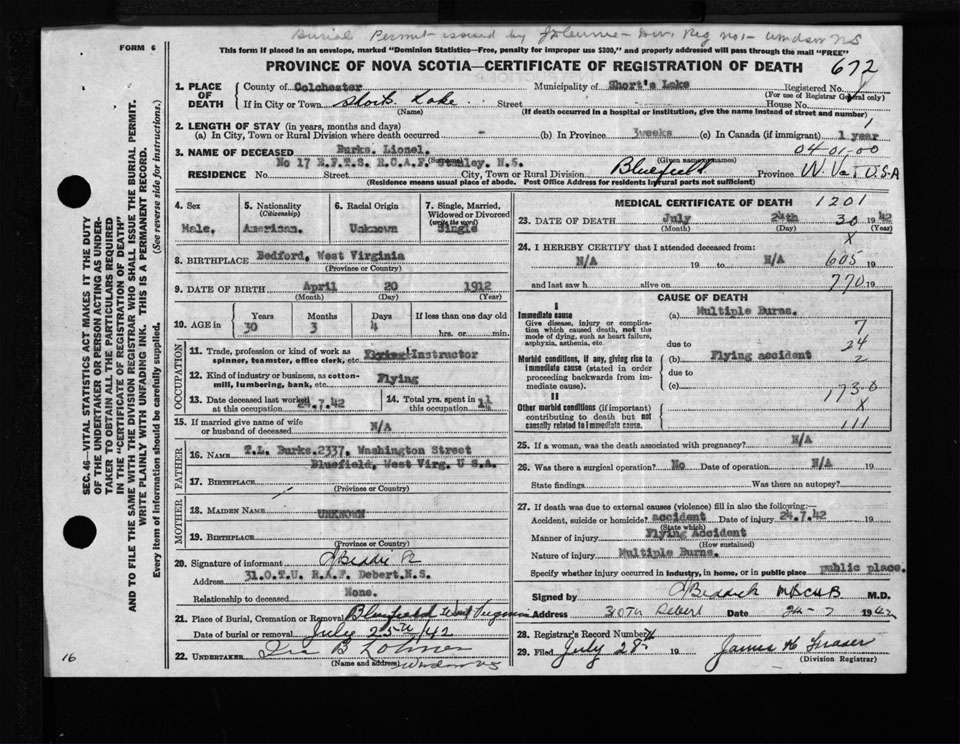 Burial Permit issued by Div. Reg no 1 - Windsor NS
FORM 6
This form if placed in an envelope, marked "Dominion Statistics—Free, penalty for improper use $300," and properly addressed will pass through the mail "FREE"
PROVINCE OF NOVA SCOTIA—CERTIFICATE OF REGISTRATION OF DEATH
672
1. PLACE OF DEATH
County of Colchester Municipality of Short's Lake Registered No.
(For use of Registrar General only)
If in City or Town Shorts Lake Street House No.
(Name) (If death occurred in a hospital or institution, give the name instead of street and number)
2. LENGTH OF STAY (in years, months and days)
(a) In City, Town or Rural Division where death occurred - (b) In Province 3weeks (c) In Canada (if immigrant) 1 year
3. NAME OF DECEASED Burks. Lionel. 04-01-00
(Surname) (Given name or names)
No 17 E.F.T.S. R.C.A.F. Stanley. N.S.
RESIDENCE No. Street City, Town or Rural Division Bluefield Province W. Va. U.S.A
(Residence means usual place of abode. Post Office Address for residents in rural parts not sufficient)
4. Sex Male.
5. Nationality (Citizenship) American.
6. Racial Origin Unknown
7. Single, Married, Widowed or Divorced (write the word) Single
8. BIRTHPLACE Bedford, West Virginia
(Province or Country)
9. DATE OF BIRTH April 20 1912
(Month) (Day) (Year)
10. AGE in Years 30 Months 3 Days 4 If less than one day old hrs. or min.
OCCUPATION
11. Trade, profession or kind of work as spinner, teamster, office clerk, etc. Flying Instructor
12. Kind of industry or business, as cotton-mill, lumbering, bank, etc. Flying
13. Date deceased last worked at this occupation 24.7.42
14. Total yrs. spent in this occupation 1¼
15. If married give name of wife or husband of deceased N/A
FATHER
16. NAME T.L. Burks.2337. Washington Street
Bluefield, West Virg. U S.A.
17. BIRTHPLACE
(Province or Country)
MOTHER
18. MAIDEN NAME UNKNOWN
19. BIRTHPLACE
(Province or Country)
20. Signature of informant
Address 31.O.T.U. R.A.F. Debert.N.S.
Relationship to deceased None.
21. Place of Burial, Cremation or Removal Bluefield West Virginia
Date of burial or removal July 25th/42
22. UNDERTAKER Ira B
(Name and address) Windsor NS
MEDICAL CERTIFICATE OF DEATH 1201
23. DATE OF DEATH July 24th 30 1942
(Month) (Day) (Year)
x
24. I HEREBY CERTIFY that I attended deceased from:
N/A 19 to N/A 605 19
and last saw h alive on 770 19
CAUSE OF DEATH
I
Immediate cause
Give disease, injury or complication which caused death, not the mode of dying, such as heart failure, asphyxia, asthenia, etc.
(a) Multiple Burns.
7
due to 24
Morbid conditions, if any, giving rise to immediate cause (stated in order proceeding backwards from immediate cause).
(b) Flying accident 2
due to
(c) 173-0
II
x
Other morbid conditions (if important) contributing to death but not causally related to immediate cause.
111
25. If a woman, was the death associated with pregnancy? N/A
26. Was there a surgical operation? No Date of operation N/A 19
State findings Was there an autopsy?
27. If death was due to external causes (violence) fill in also the following:—
Accident, suicide or homicide? accident Date of injury 24.7.42
(State which)
Manner of injury Flying Accident
(How sustained)
Nature of injury Multiple Burns.
Specify whether injury occurred in industry, in home, or in public place public place.
Signed by M.D.
Address 31 OTU Debert Date 24-7 1942
28. Registrar's Record Number
29. Filed July 28th 19 James H Fraser
(Division Registrar)
SEC. 46—VITAL STATISTICS ACT MAKES IT THE DUTY
OF THE UNDERTAKER OR PERSON ACTING AS UNDER-
TAKER TO OBTAIN ALL THE PARTICULARS REQUIRED
IN THE "CERTIFICATE OF REGISTRATION OF DEATH"
AND TO FILE THE SAME WITH THE DIVISION REGISTRAR WHO SHALL ISSUE THE BURIAL PERMIT.
WRITE PLAINLY WITH UNFADING INK. THIS IS A PERMANENT RECORD.
Every item of Information should be carefully supplied. (See reverse side for instructions.)
16